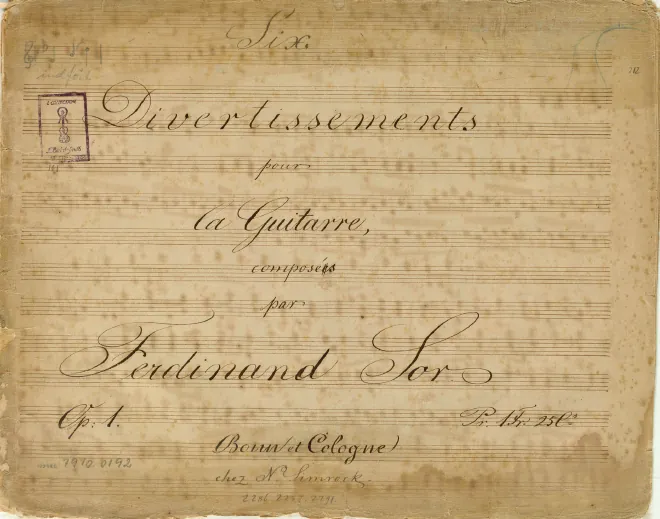 Six.
Divertissements
pour
la Guitarre,
composées
par
Ferdinand Sor
Op: 1.
Pr. 1 Fr. 25 Cs
Bonn et Cologne
chez N. Simrock.
1910 0192